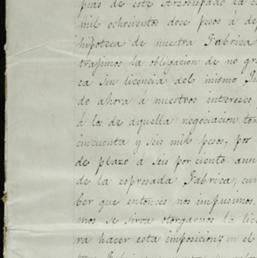 pias de este Arzobispado la c
mil ochocientos doce pesos á de
hipoteca de nuestra Fabrica
trajimos la obligacion de no gra
ca sin licencia del mismo Ju
do ahora a nuestros intereses
á los de aquella negociacion to
cincuenta y seis mil pesos, por
de plazo á seis por ciento anu
de la espresada Fabrica, cum
ber que entonces nos impusimos
mos se sirva otorgarnos la lic
ra hacer esta imposicion; en el